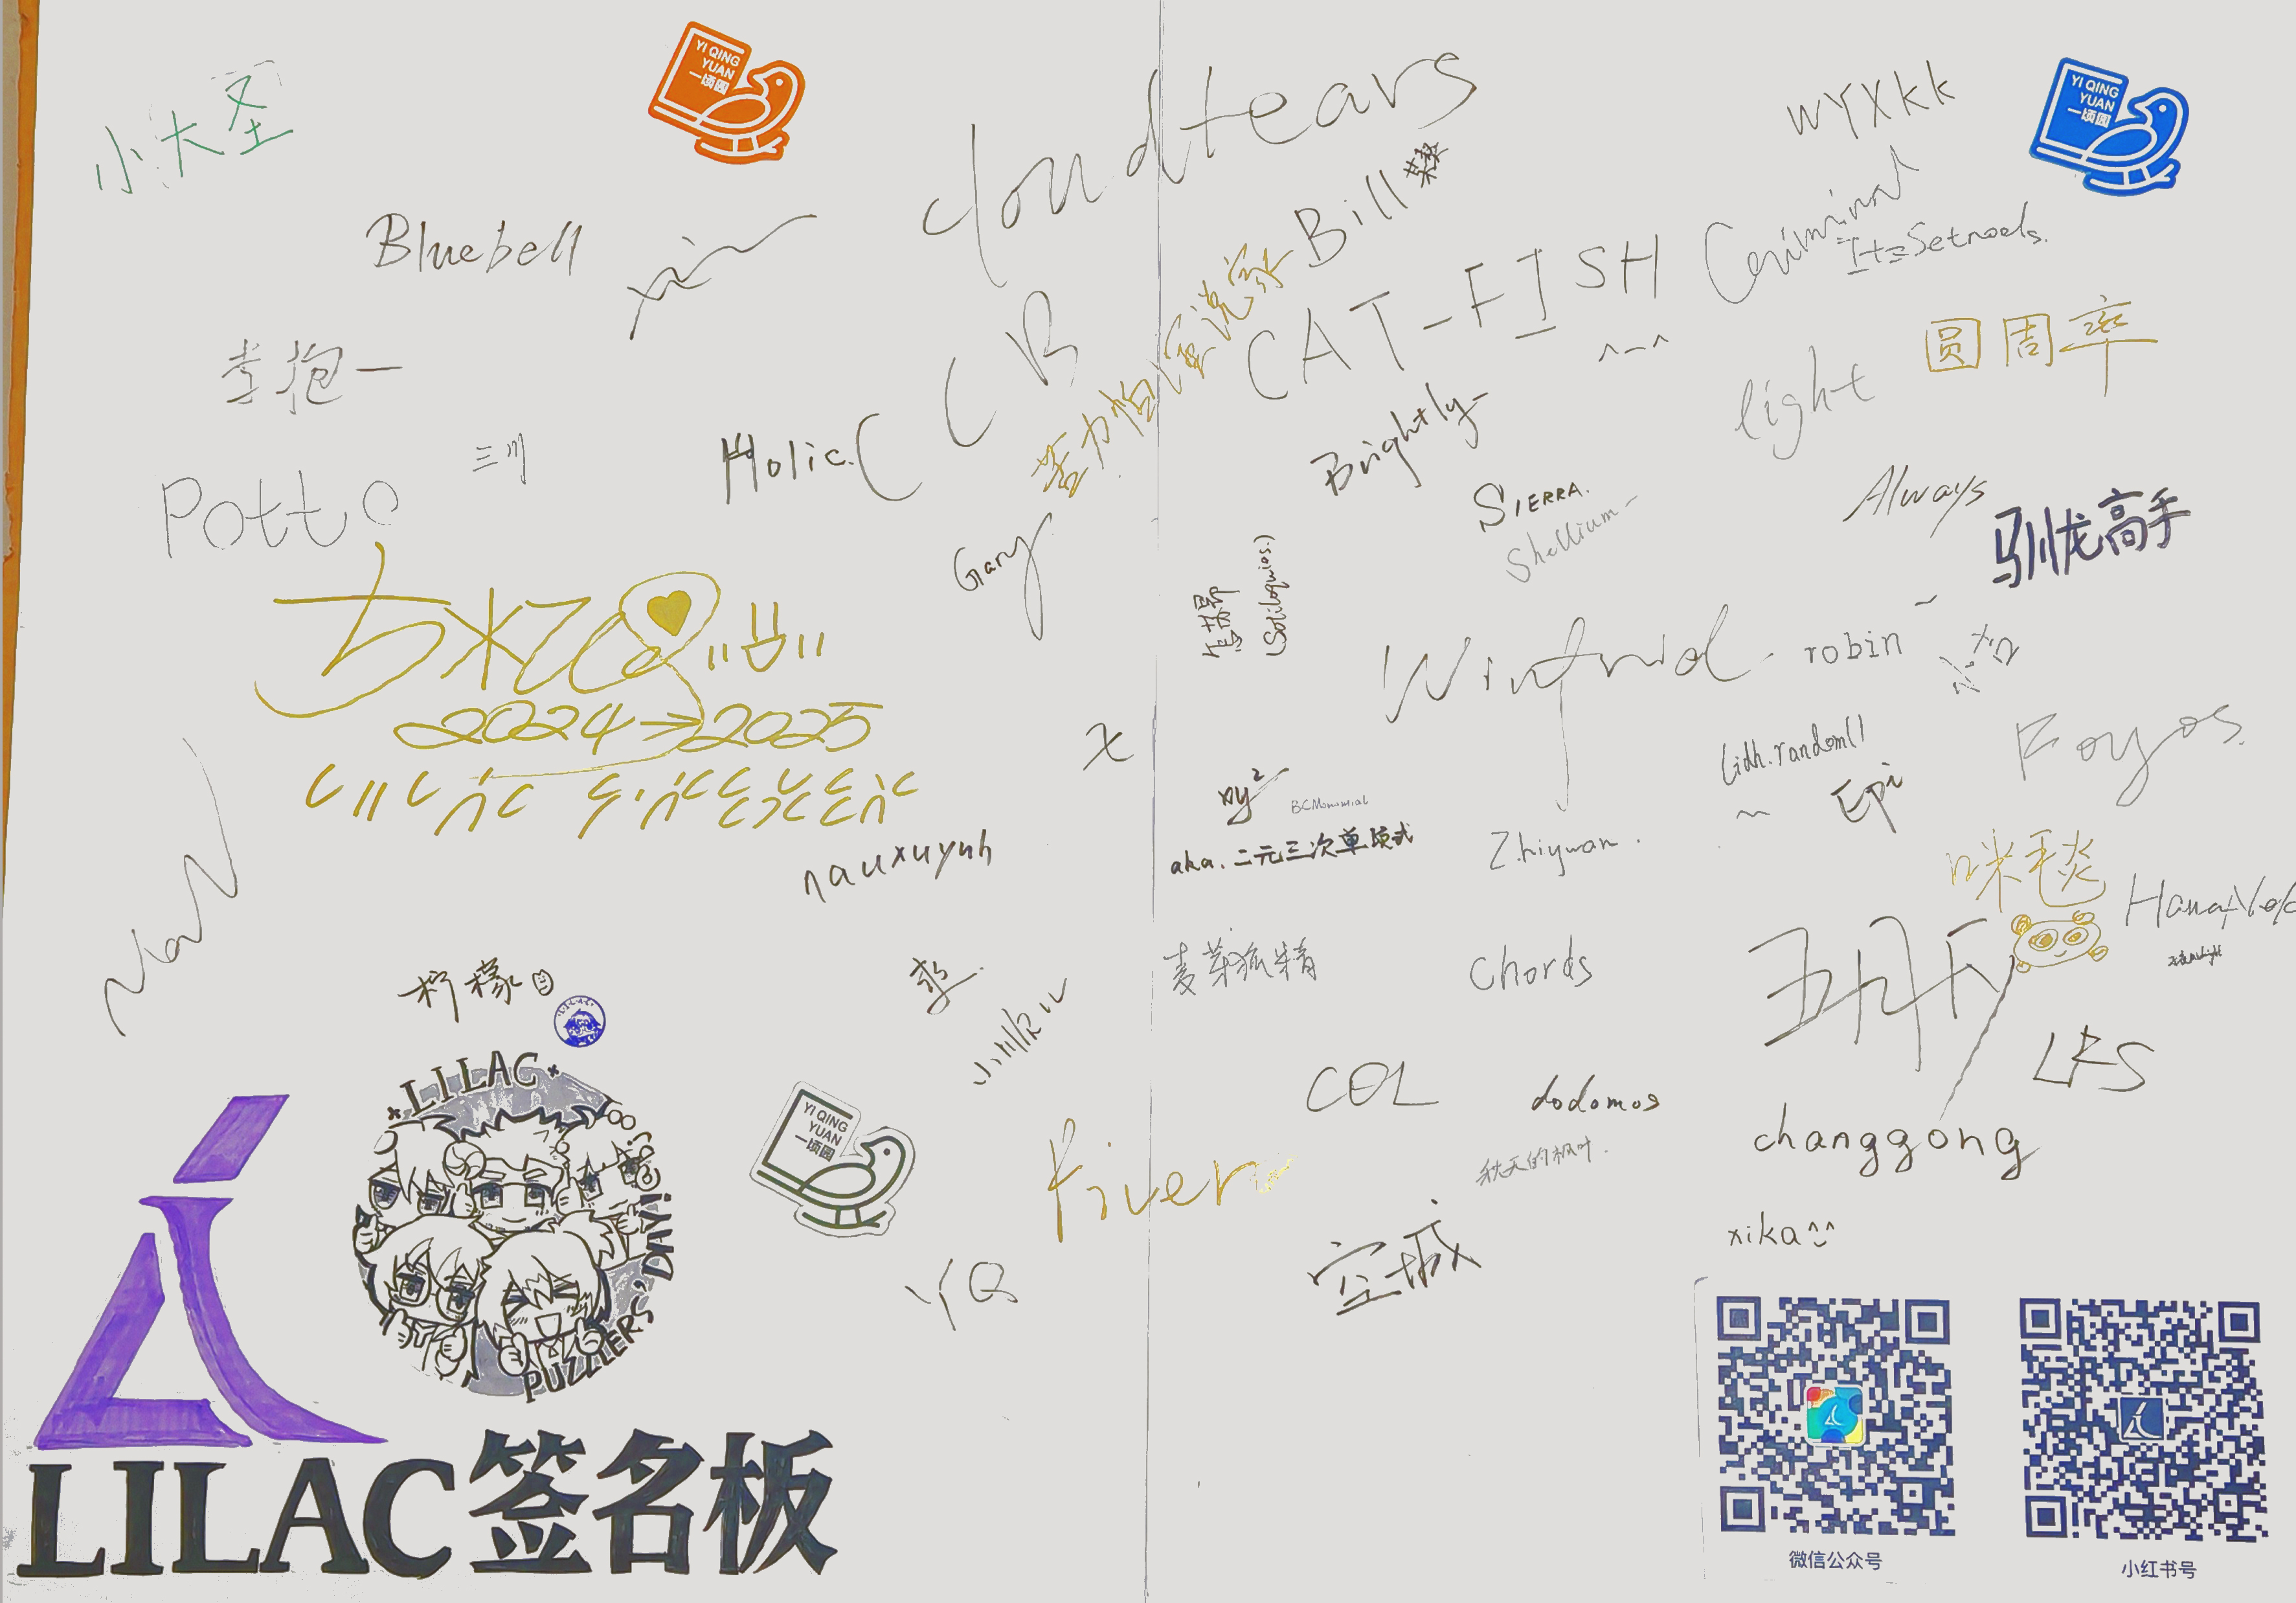 小大圣
YI QING
YUAN
一顷园
cloudtears
WYXkk
YI QING
YUAN
一顷园
Bluebell
xin
Bill
CAT-FISH
^-^
Criminal
李抱一
三川
Holic.
CCB
Brightly
light
圆周率
Potto
Gary
SIERRA.
Shellium
Always
驯龙高手
(Soliloquios.)
Winfrid
robin
2024→2025
x
xy²
BCMonomial
aka.二元三次单项式
Zhiyuan.
Lidh.random()
Epi
Foyos
nauxuynh
咪毯
麦芽狐精
Chords
柠檬
小川顺
LILAC
PUZZLERS' DAY!
YI QING
YUAN
一顷园
COL
dodomos
LFS
秋天的枫叶.
changgong
YQ
空城
xika^^
LILAC签名板
微信公众号
小红书号